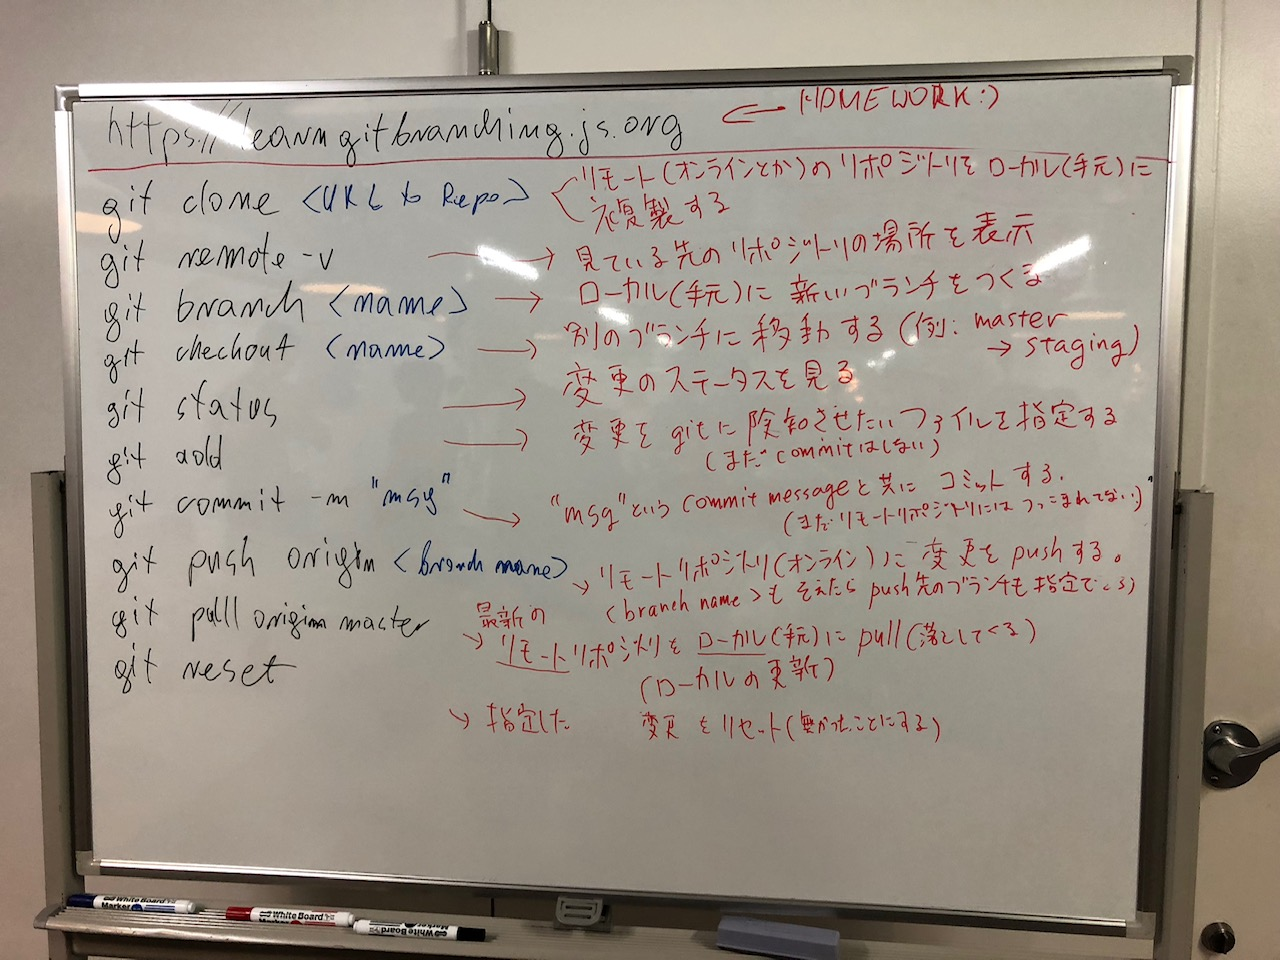 https://learngitbranching.js.org ← HOMEWORK:)
git clone <URL to Repo> リモート(オンラインとか)のリポジトリをローカル(手元)に
複製する
git remote -v → 見ている先のリポジトリの場所を表示
git branch <name> → ローカル(手元)に新しいブランチをつくる
git checkout <name> → 別のブランチに移動する(例: master
→ staging)
git status → 変更のステータスを見る
git add → 変更をgitに 知させたいファイルを指定する
(まだcommitはしない)
git commit -m "msg" → "msg"というcommit messageと共にコミットする.
(まだリモートリポジトリにはつっこまれてない:)
git push origin <branch name> → リモートリポジトリ(オンライン)に変更をpushする。
<branch name>もそえたらpush先のブランチも指定できる)
git pull origin master 最新の
→ リモートリポジトリをローカル(手元)にpull(落としてくる)
(ローカルの更新)
git reset
→ 指定した 変更をリセット(無かったことにする)
White Board
Marker
White Board
Marker
White Board
Marker